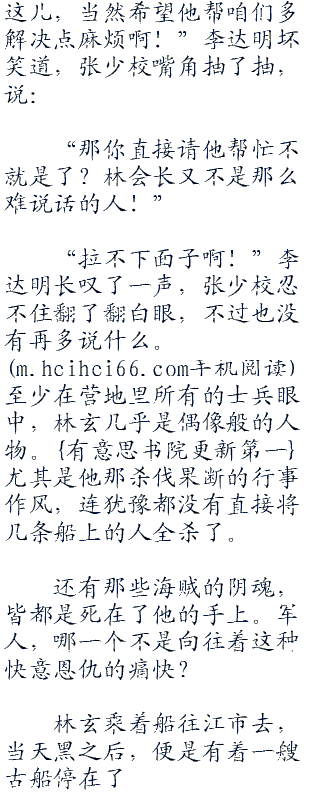 这儿，当然希望他帮咱们多
解决点麻烦啊！”李达明坏
笑道，张少校嘴角抽了抽，
说：
“那你直接请他帮忙不
就是了？林会长又不是那么
难说话的人！”
“拉不下面子啊！”李
达明长叹了一声，张少校忍
不住翻了翻白眼，不过也没
有再多说什么。
(m.hcihci66.com手机阅读)
至少在营地里所有的士兵眼
中，林玄几乎是偶像般的人
物。{有意思书院更新第一}
尤其是他那杀伐果断的行事
作风，连犹豫都没有直接将
几条船上的人全杀了。
还有那些海贼的阴魂，
皆都是死在了他的手上。军
人，哪一个不是向往着这种
快意恩仇的痛快？
林玄乘着船往江市去，
当天黑之后，便是有着一艘
古船停在了